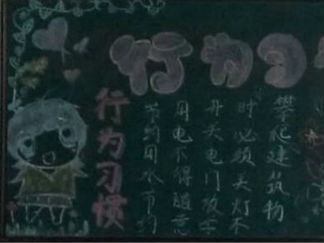 行为习
行为习惯
节约用水节约
用电不得随意
开关电门放学
时必须关灯不
攀爬建筑物